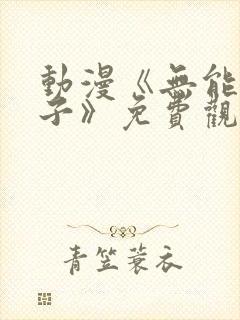 動漫《無能
子》免費觀
青笠蓑衣